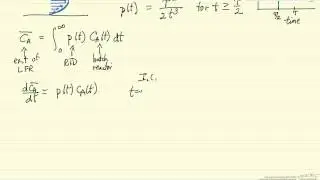 p(t) = 2t³ for t ≥ τ/2
τ/2 τ
time
C̄_A = ∫₀^∞ p(t) C_A(t) dt
exit of LFR RTD batch reactor
I.C.
dC̄_A/dt = p(t) C_A(t) t=